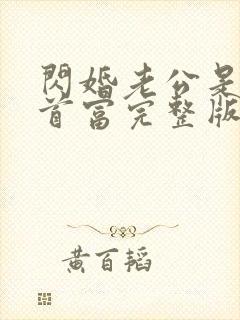 閃婚老公是
首富完整版
黃百韜